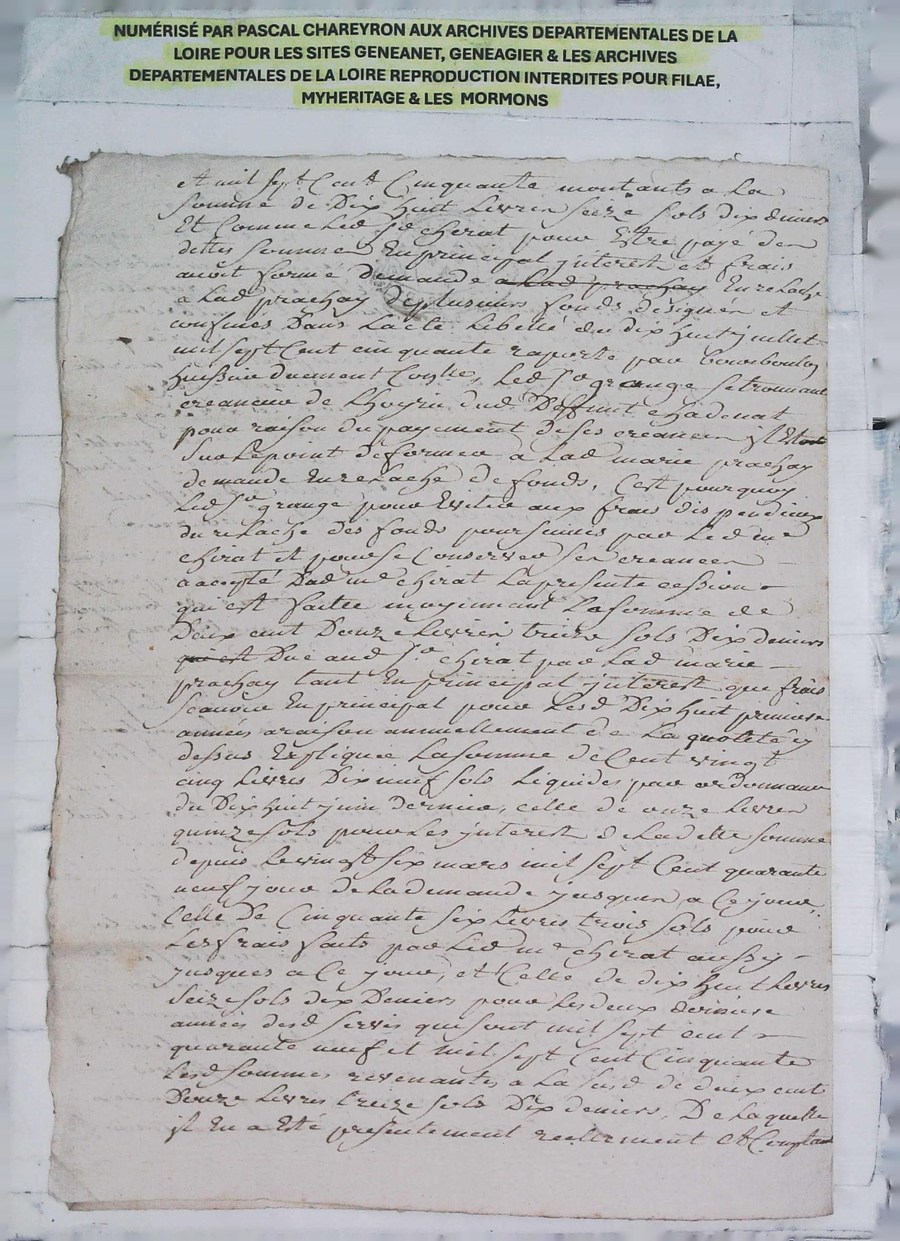 NUMÉRISÉ PAR PASCAL CHAREYRON AUX ARCHIVES DEPARTEMENTALES DE LA
LOIRE POUR LES SITES GENEANET, GENEAGIER & LES ARCHIVES
DEPARTEMENTALES DE LA LOIRE REPRODUCTION INTERDITES POUR FILAE,
MYHERITAGE & LES MORMONS
et mil sept Cent Cinquante montants a La
somme de Dix huit Livres seize sols dix deniers
Et Comme Led Sr cherat pour Estre payé des
dittes sommes En principal jnterest et frais
avoit formé demande a Lad prachay En relache
a Lad prachay de plusieurs fonds désignés et
confinés Dans Lacte Libellé du dix huit juillet
mil sept Cent cinquante raporté par
huissier duement Led Sr grange se trouvant
creancier de Lhoyrie dud Deffunt chadenat
pour raison du payement de ses creances jl Etoit
sur Le point de former a Lad marie prachay
demande En relache de fonds, C'est pourquoy
Led Sr grange pour Eviter aux frais dispendieux
du relache des fonds poursuivis par Led me
chirat et pour se Conserver ses creances
a accepté Dud me chirat La presente cession
qui est faitte moyennant La somme de
Deux cent Douze Livres treize sols Dix deniers
qui est Due aud Sr chirat par Lad marie
prachay tant En principal jnterest que frais
scavoir En principal pour Lesd Dix huit premiere
années a raison annuellement de La quotité cy
dessus Expliquée La somme de Cent vingt
cinq Livres Dix neuf sols Liquidés par ordonnance
du Dix huit juin dernier, celle de onze Livres
quinze sols pour Les jnterest de La ditte somme
depuis Le vingt six mars mil sept Cent quarante
neuf jour de La demande jusques a Ce jour,
Celle de Cinquante six Livres trois sols pour
Les frais faits par Led me chirat aussy
jusques a Ce jour, et Celle de dix huit Livres
seize sols dix Deniers pour Les deux derniere
années desd servis qui sont mil sept cent
quarante neuf et mil sept Cent Cinquante
Lesd sommes revenantes a La susd de deux cent
Douze Livres treize sols Dix deniers, De Laquelle
jl En a Eté presentement reellement et Comptant